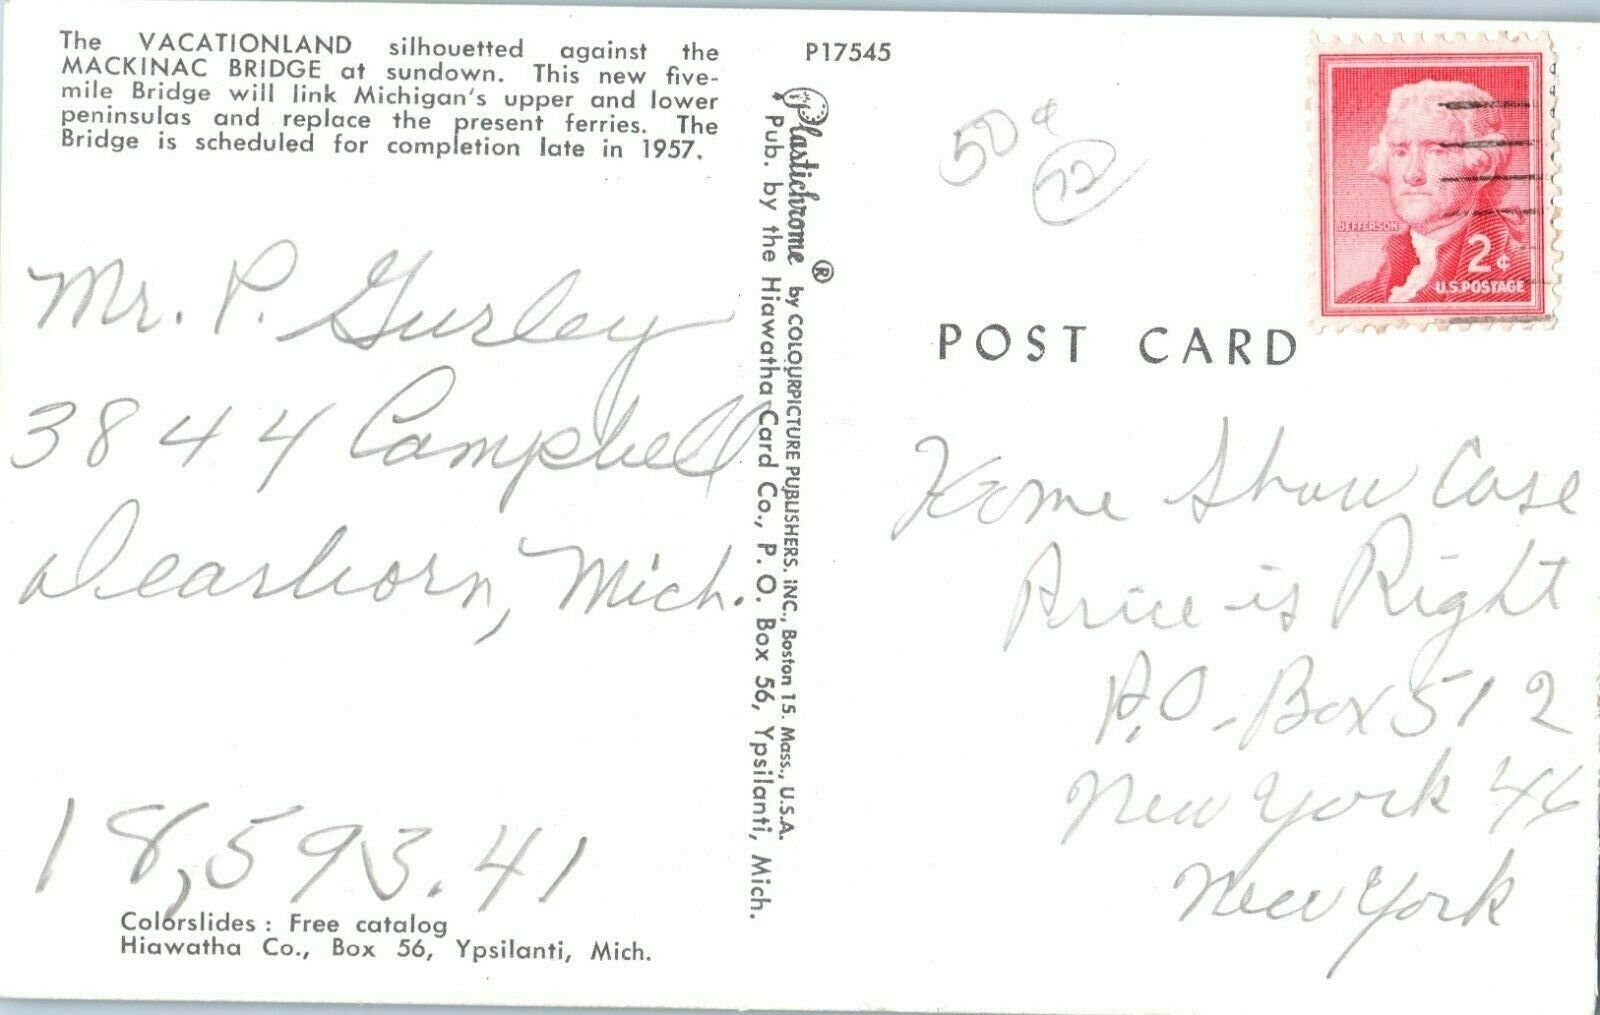 The VACATIONLAND silhouetted against the
MACKINAC BRIDGE at sundown. This new five-
mile Bridge will link Michigan's upper and lower
peninsulas and replace the present ferries. The
Bridge is scheduled for completion late in 1957.
Mr. P. Gurley
3844 Campbell
Dearborn, Mich.
18,593.41
Colorslides: Free catalog
Hiawatha Co., Box 56, Ypsilanti, Mich.
P17545
Plastichrome® by COLOURPICTURE PUBLISHERS, INC., Boston 15, Mass., U.S.A.
Pub. by the Hiawatha Card Co., P. O. Box 56, Ypsilanti, Mich.
50¢
72
JEFFERSON
2¢
U.S. POSTAGE
POST CARD
Home Show Case
Price is Right
P.O. Box 512
New York 46
New York